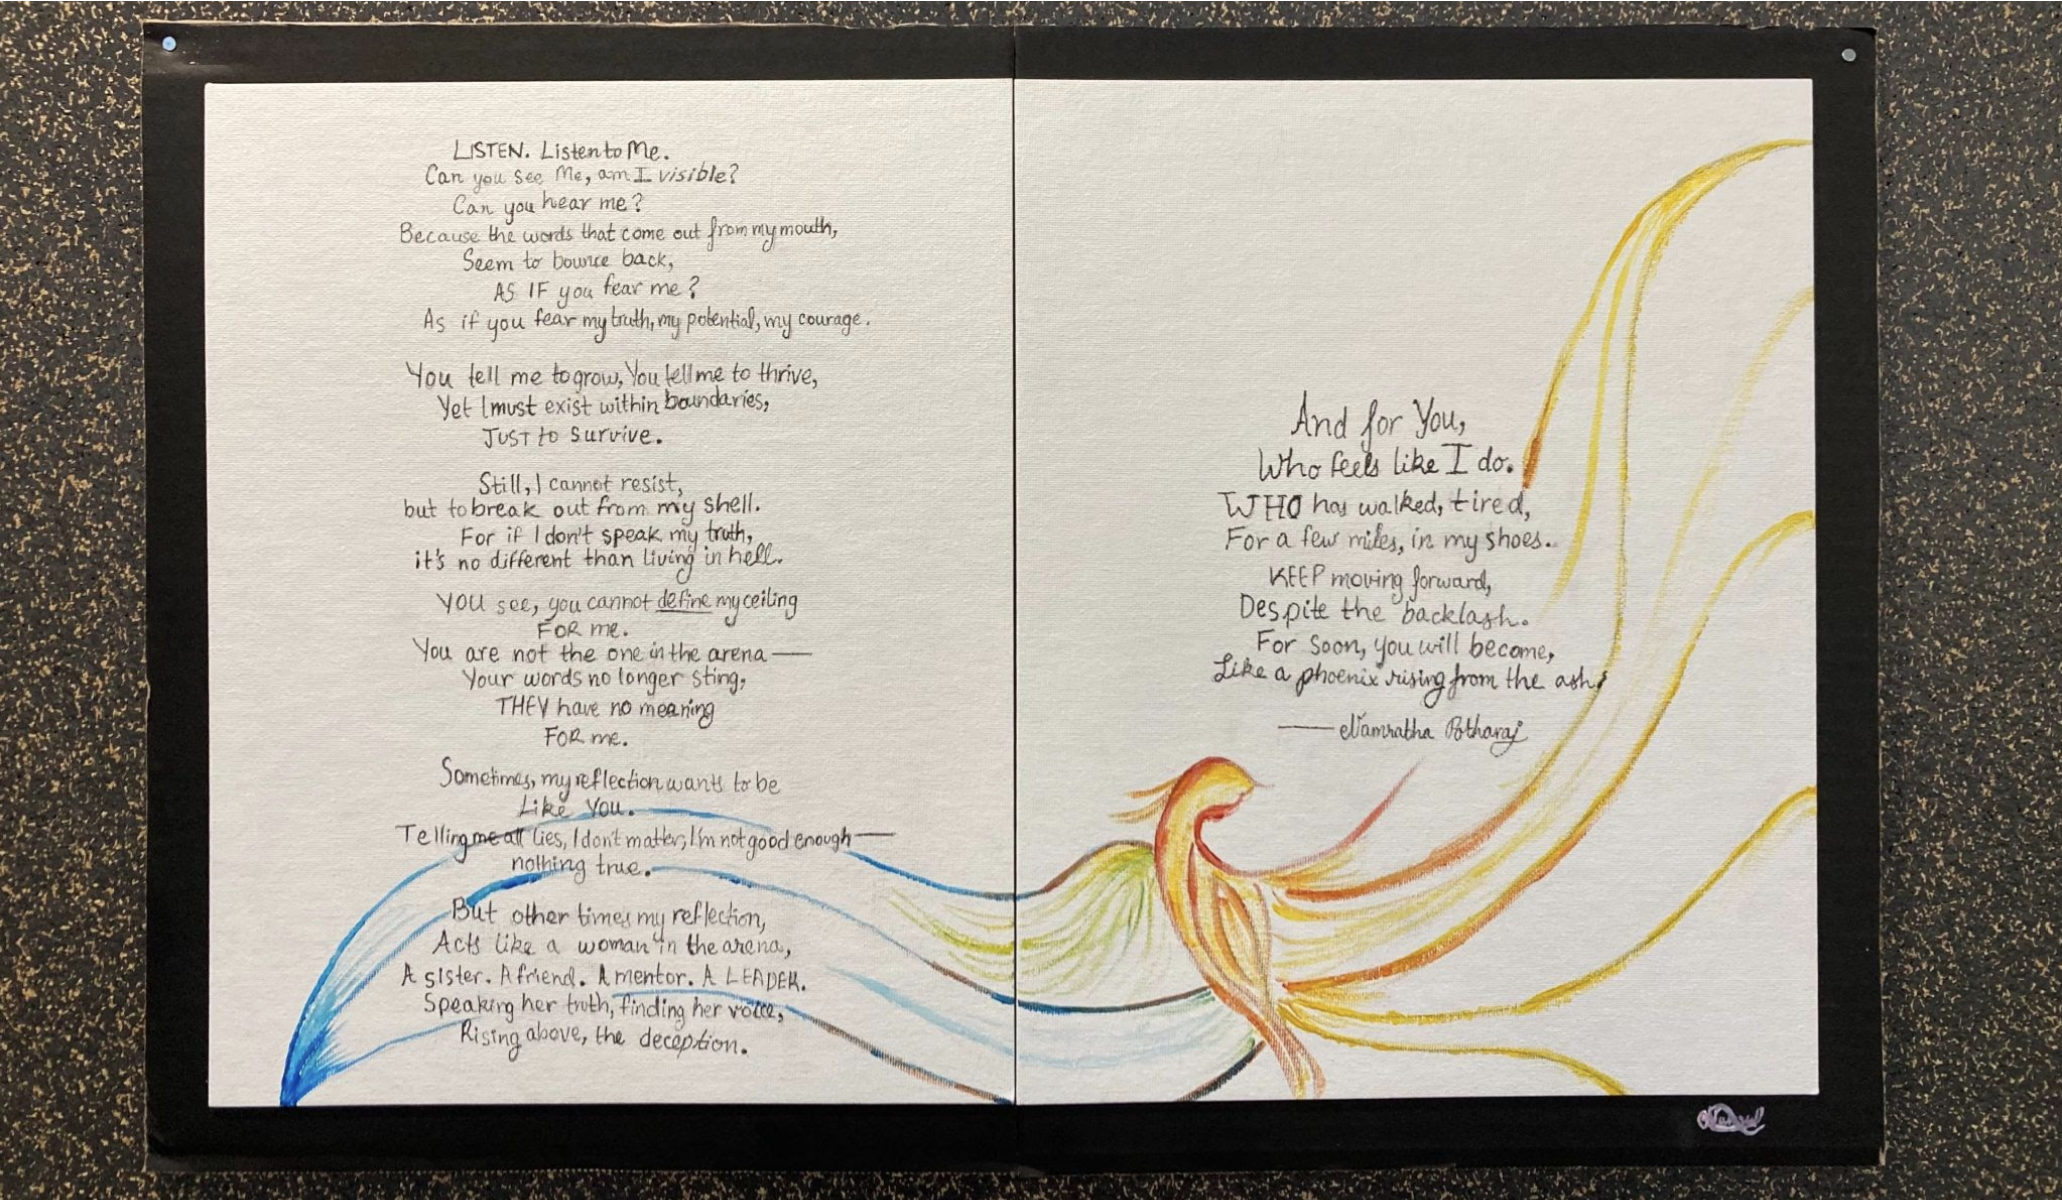 LISTEN. Listen to Me.
Can you see Me, am I visible?
Can you hear me?
Because the words that come out from my mouth,
Seem to bounce back,
AS IF you fear me?
As if you fear my truth, my potential, my courage.
You tell me to grow, You tell me to thrive,
Yet I must exist within boundaries,
JUST to survive.
Still, I cannot resist,
but to break out from my shell.
For if I don't speak my truth,
it's no different than living in hell.
YOU see, you cannot define my ceiling
FOR me.
You are not the one in the arena —
Your words no longer sting,
THEY have no meaning
FOR me.
Sometimes, my reflection wants to be
Like You.
Telling me all lies, I don't matter, I'm not good enough —
nothing true.
But other times my reflection,
Acts like a woman in the arena,
A sister. A friend. A mentor. A LEADER.
Speaking her truth, finding her voice,
Rising above, the deception.
And for You,
Who feels like I do.
WHO has walked, tired,
For a few miles, in my shoes.
KEEP moving forward,
Despite the backlash.
For soon, you will become,
Like a phoenix rising from the ash.
— Namratha Potharaj